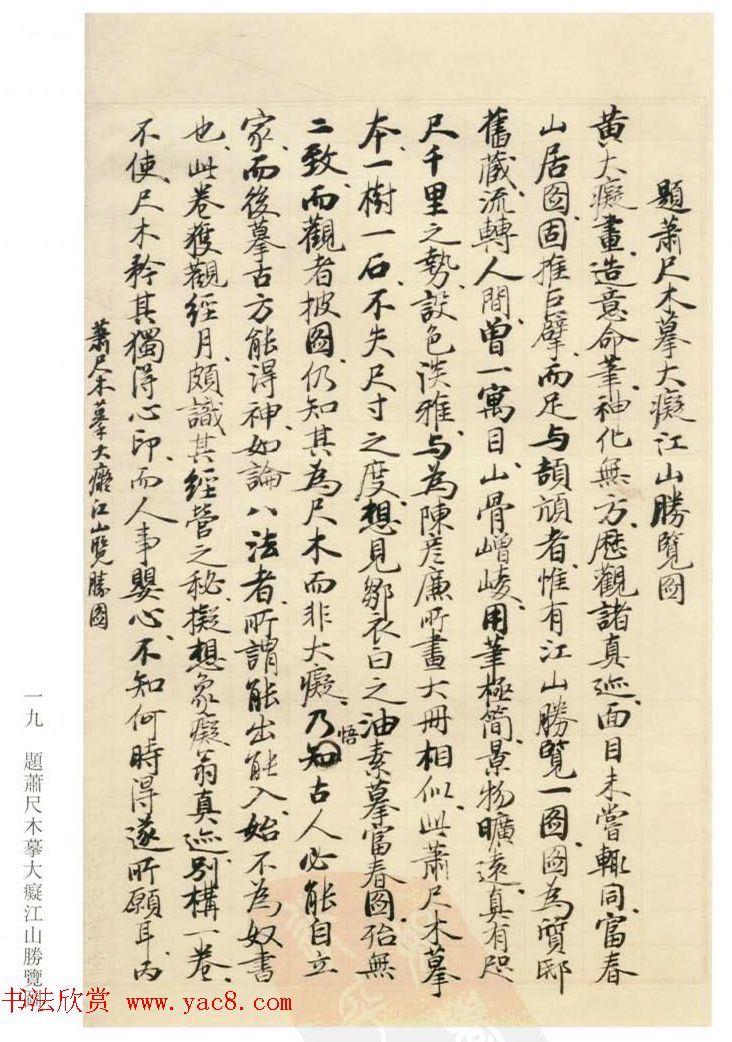 題蕭尺木摹大癡江山勝覽圖
黄大癡畫、造意命筆、神化無方、歷觀諸真迹、面目未嘗輒同、富春
山居圖、固推巨擘、而足与頡頏者、惟有江山勝覽一圖、圖為質邸
舊藏、流轉人間、曾一寓目、山骨嶒崚、用筆極簡、景物曠遠、真有咫
尺千里之勢、設色淡雅、与為陳彦廉所畫大册相似、此蕭尺木摹
本、一樹一石、不失尺寸之度、想見鄒衣白之油素摹富春圖、殆無
二致、而觀者披圖、仍知其為尺木而非大癡、乃悟古人必能自立
家、而後摹古方能得神、如論八法者、所謂能出能入、始不為奴書
也、此卷獲觀經月、頗識其經營之秘、擬想象癡翁真迹、别構一卷、
不使尺木矜其獨得心印、而人事嬰心、不知何時得遂所願耳、丙
蕭尺木摹大癡江山覽勝圖
一九 題蕭尺木摹大癡江山勝覽圖
书法欣赏 www.yac8.com